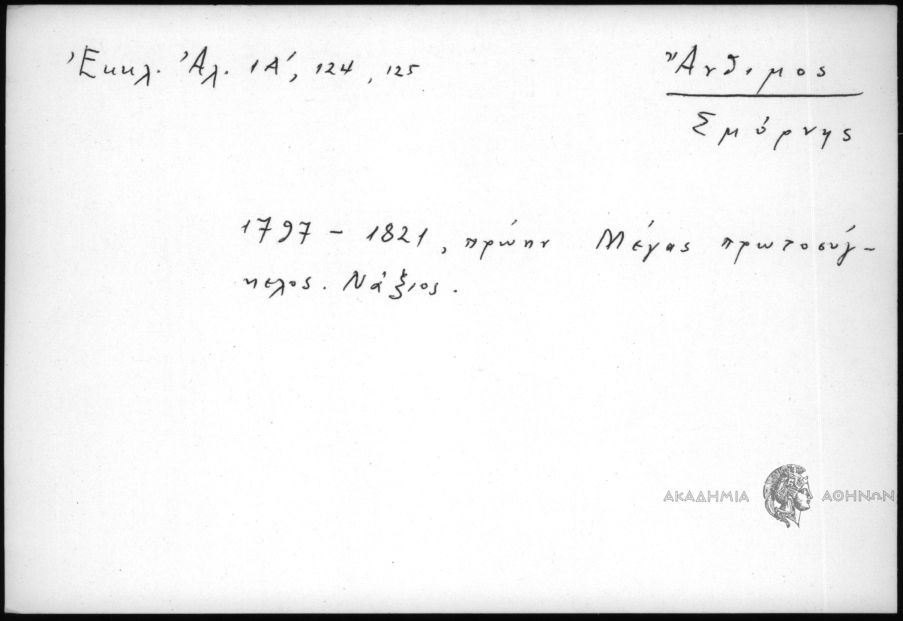 Ἐκκλ. Ἀλ. ΙΑ΄, 124, 125
Ἄνθιμος
Σμύρνης
1797 - 1821, πρώην Μέγας πρωτοσύγ-
κελος. Νάξιος.
ΑΚΑΔΗΜΙΑ ΑΘΗΝΩΝ